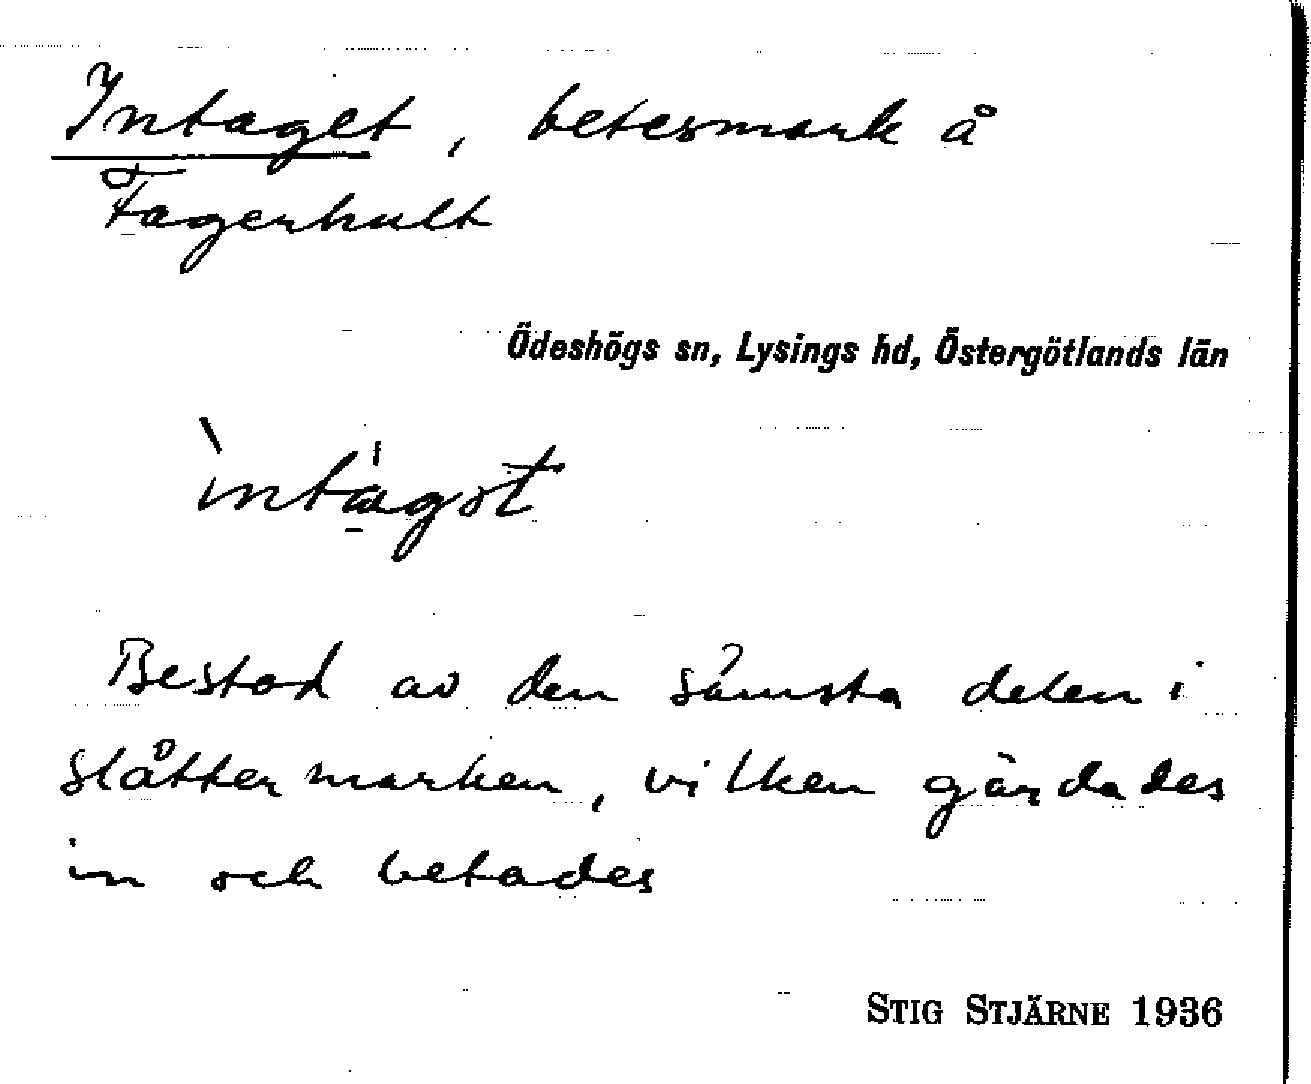 Intaget, betesmark å
Fagerhult
Ödeshögs sn, Lysings hd, Östergötlands län
ìntágət
Bestod av den sämsta delen i
slåttermarken, vilken gärdades
in och betades
STIG STJÄRNE 1936